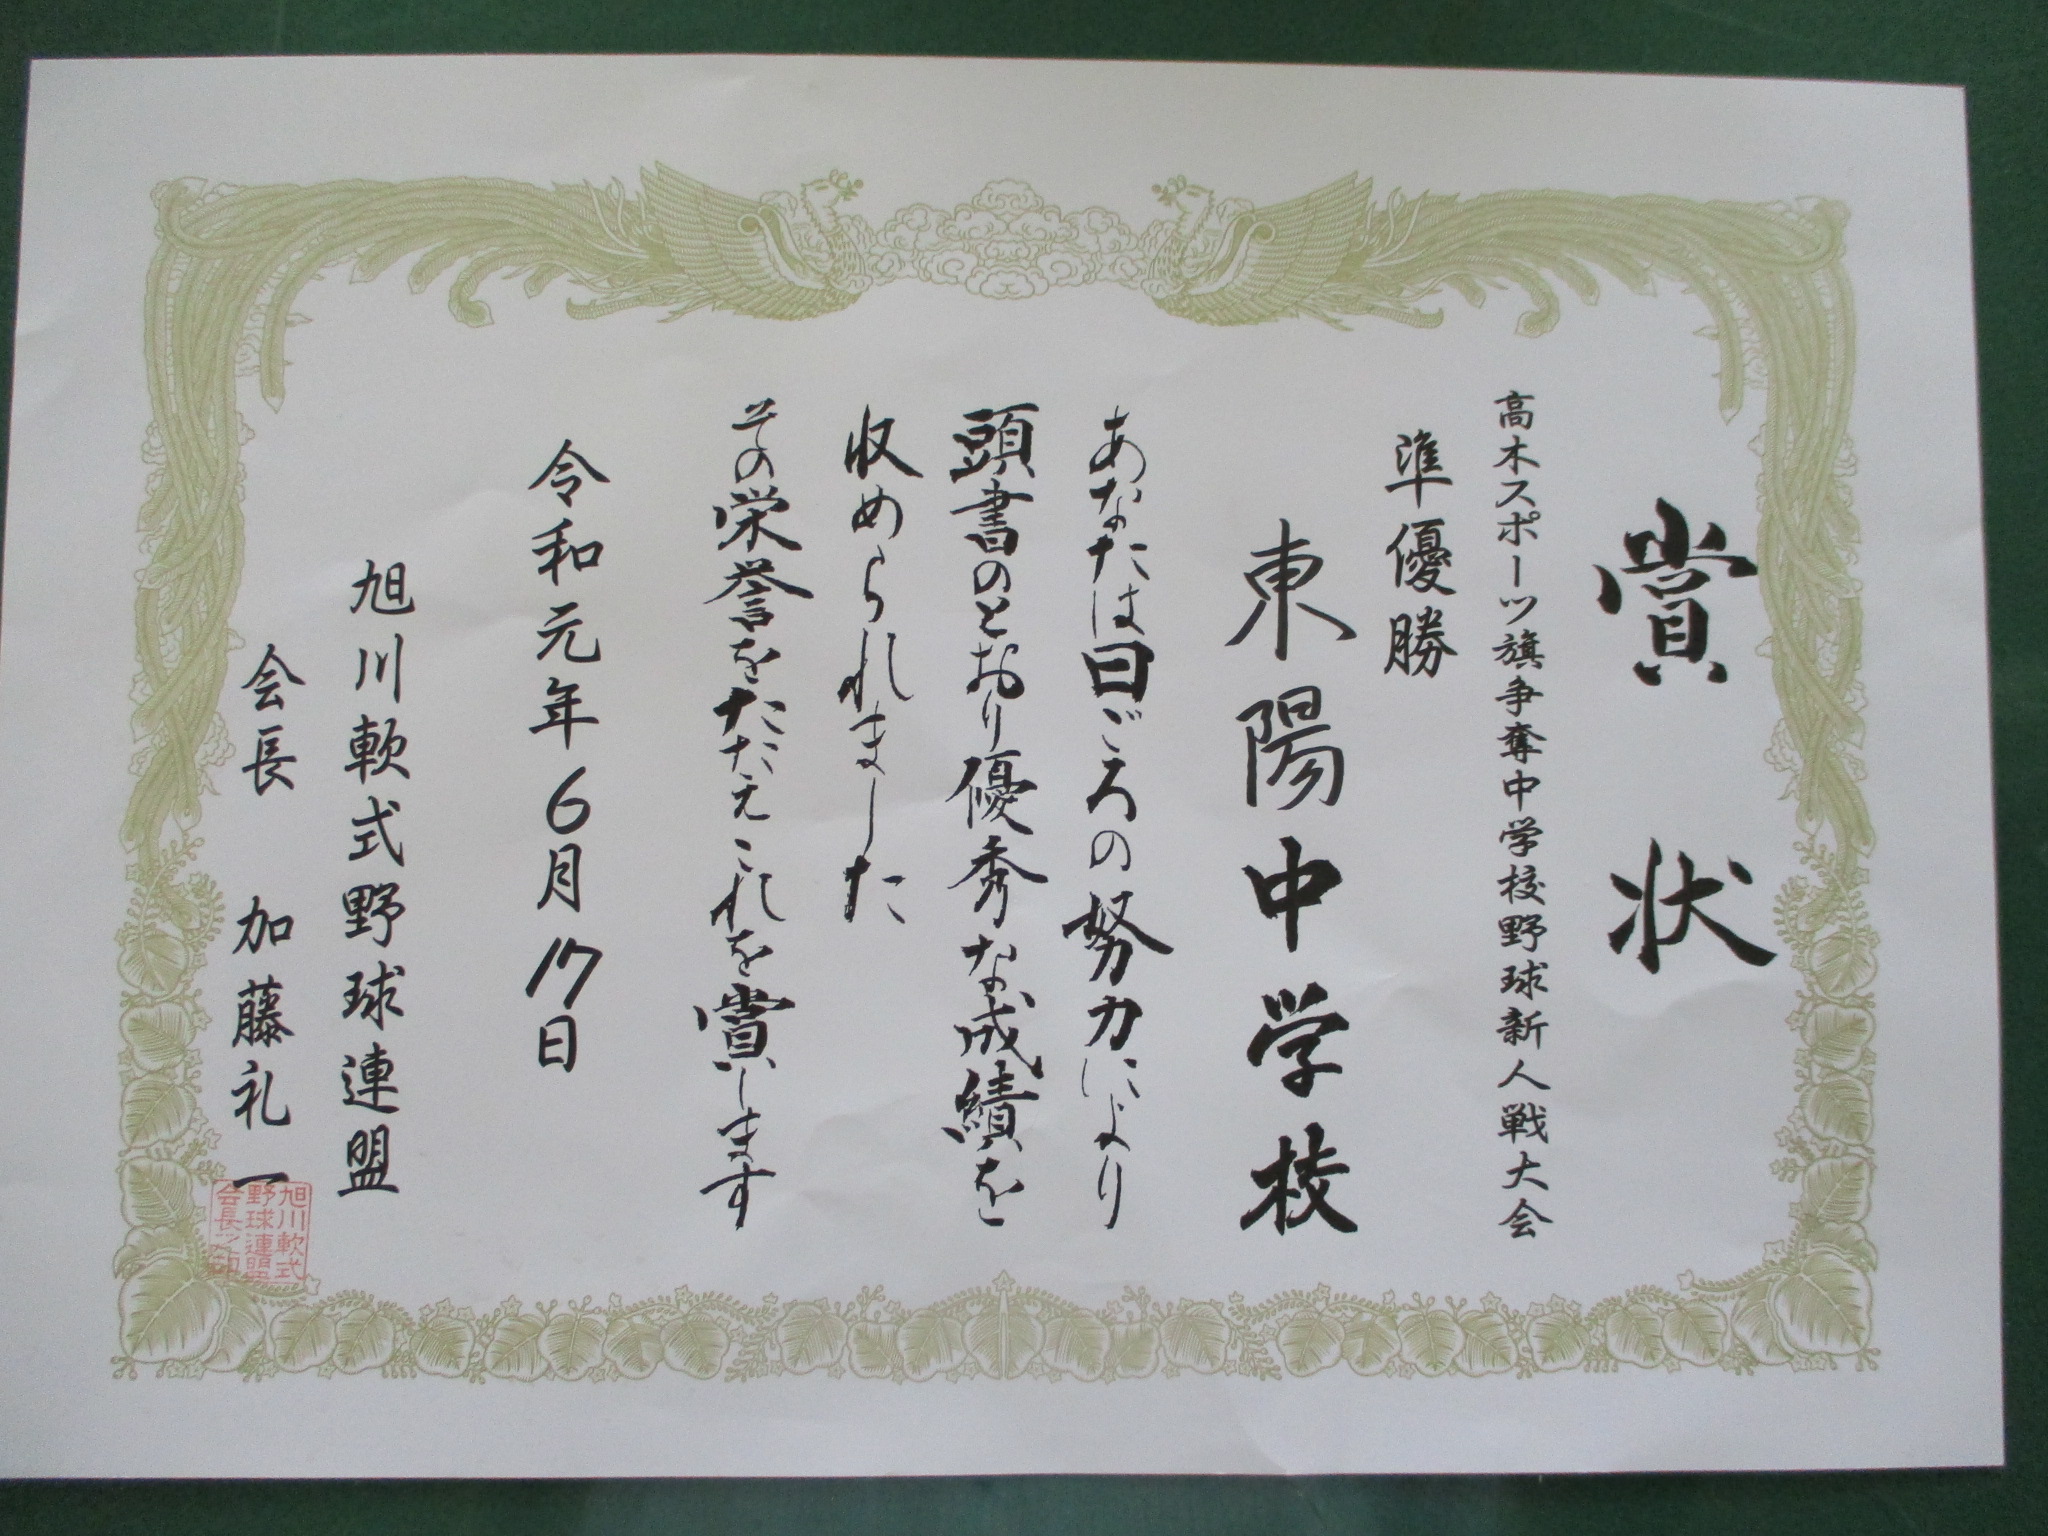 賞状
高木スポーツ旗争奪中学校野球新人戦大会
準優勝
東陽中学校
あなたは日ごろの努力により
頭書のとおり優秀な成績を
収められました
その栄誉をたたえこれを賞します
令和元年6月17日
旭川軟式野球連盟
会長 加藤礼一
旭川軟式
野球連盟
会長之印